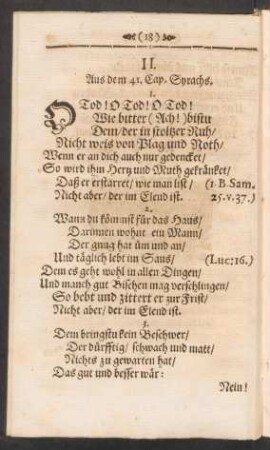 (18)
II.
Aus dem 41. Cap. Syrachs.
1.
O Tod! O Tod! O Tod!
Wie bitter (Ach!) bistu
Dem/ der in stoltzer Ruh/
Nicht weis von Plag und Noth/
Wenn er an dich auch nur gedencket/
So wird ihm Hertz und Muth gekräncket/
Daß er erstarret/ wie man list/ (1. B. Sam.
Nicht aber/ der im Elend ist. 25. v. 37.)
2.
Wann du kömmst für das Haus/
Darinnen wohnt ein Mann/
Der gnug hat üm und an/
Und täglich lebt im Saus/ (Luc: 16.)
Dem es geht wohl in allen Dingen/
Und manch gut Bischen mag verschlingen/
So bebt und zittert er zur Frist/
Nicht aber/ der im Elend ist.
3.
Dem bringstu kein Beschwer/
Der dürfftig/ schwach und matt/
Nichts zu gewarten hat/
Das gut und besser wär:
Nein!